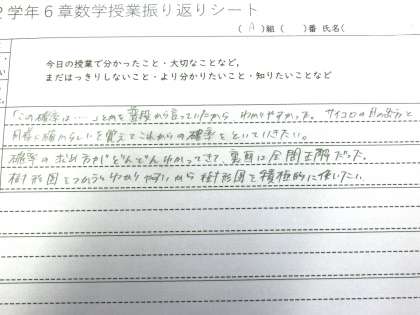 2学年6章数学授業振り返りシート
(A)組( )番 氏名(
今日の授業で分かったこと・大切なことなど,
まだはっきりしないこと・より分かりたいこと・知りたいことなど
「この確率は…」とかを普段から言っていたから わかりやすかった。サイコロの目の出方と
同様に確からしいを覚えてこれからの確率をといていきたい。
確率の求め方がどんどんわかってきて、裏面は全問正解だった。
樹形図をつかうとわかりやすいから樹形図を積極的に使いたい。